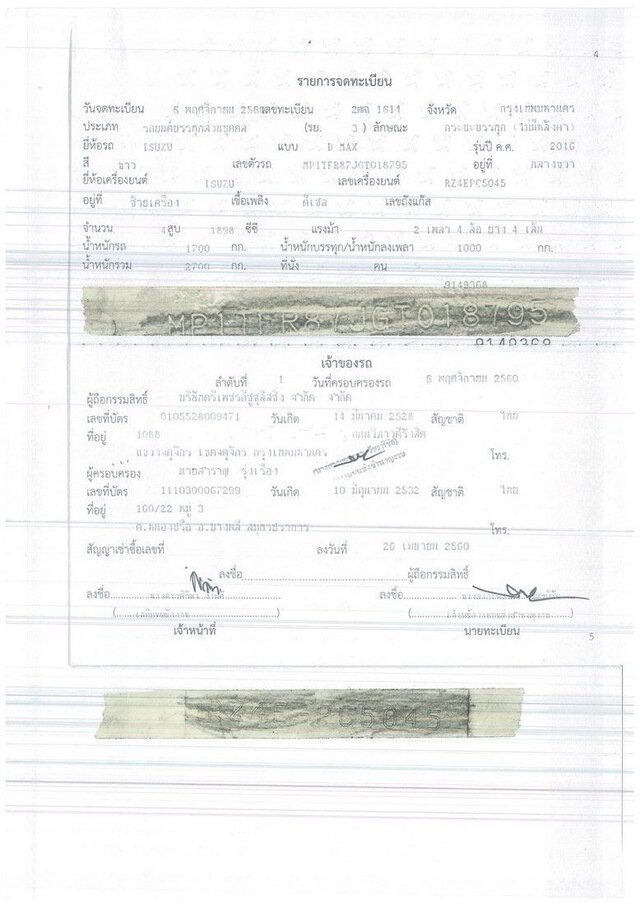 4
รายการจดทะเบียน
วันจดทะเบียน 6 พฤศจิกายน 2560 เลขทะเบียน 2ฒฉ 1614 จังหวัด กรุงเทพมหานคร
ประเภท รถยนต์บรรทุกส่วนบุคคล (รย. 3) ลักษณะ กระบะบรรทุก (ไม่มีหลังคา)
ยี่ห้อรถ ISUZU แบบ D MAX รุ่นปี ค.ศ. 2016
สี ขาว เลขตัวรถ MP1TFR87JGT018795 อยู่ที่ กลางขวา
ยี่ห้อเครื่องยนต์ ISUZU เลขเครื่องยนต์ RZ4EPC5045
อยู่ที่ ซ้ายเครื่อง เชื้อเพลิง ดีเซล เลขถังแก๊ส
จำนวน 4 สูบ 1898 ซีซี แรงม้า 2 เพลา 4 ล้อ ยาง 4 เส้น
น้ำหนักรถ 1700 กก. น้ำหนักบรรทุก/น้ำหนักลงเพลา 1000 กก.
น้ำหนักรวม 2700 กก. ที่นั่ง คน
9149368
MP1TFR87JGT018795
9149368
เจ้าของรถ
ลำดับที่ 1 วันที่ครอบครองรถ 6 พฤศจิกายน 2560
ผู้ถือกรรมสิทธิ์ บริษัทตรีเพชรอีซูซุลิสซิ่ง จำกัด จำกัด
เลขที่บัตร 0105528009471 วันเกิด 14 มีนาคม 2528 สัญชาติ ไทย
ที่อยู่ 1088 ถนนวิภาวดีรังสิต
แขวงจตุจักร เขตจตุจักร กรุงเทพมหานคร โทร.
ผู้ครอบครอง นายสำราญ รุ่งเรือง
เลขที่บัตร 1110300067299 วันเกิด 10 มิถุนายน 2532 สัญชาติ ไทย
ที่อยู่ 160/22 หมู่ 3
ต.หนองปรือ อ.บางพลี สมุทรปราการ โทร.
สัญญาเช่าซื้อเลขที่ ลงวันที่ 26 เมษายน 2560
ลงชื่อ ผู้ถือกรรมสิทธิ์
ลงชื่อ ลงชื่อ
เจ้าหน้าที่ นายทะเบียน
5
RZ4EPC5045